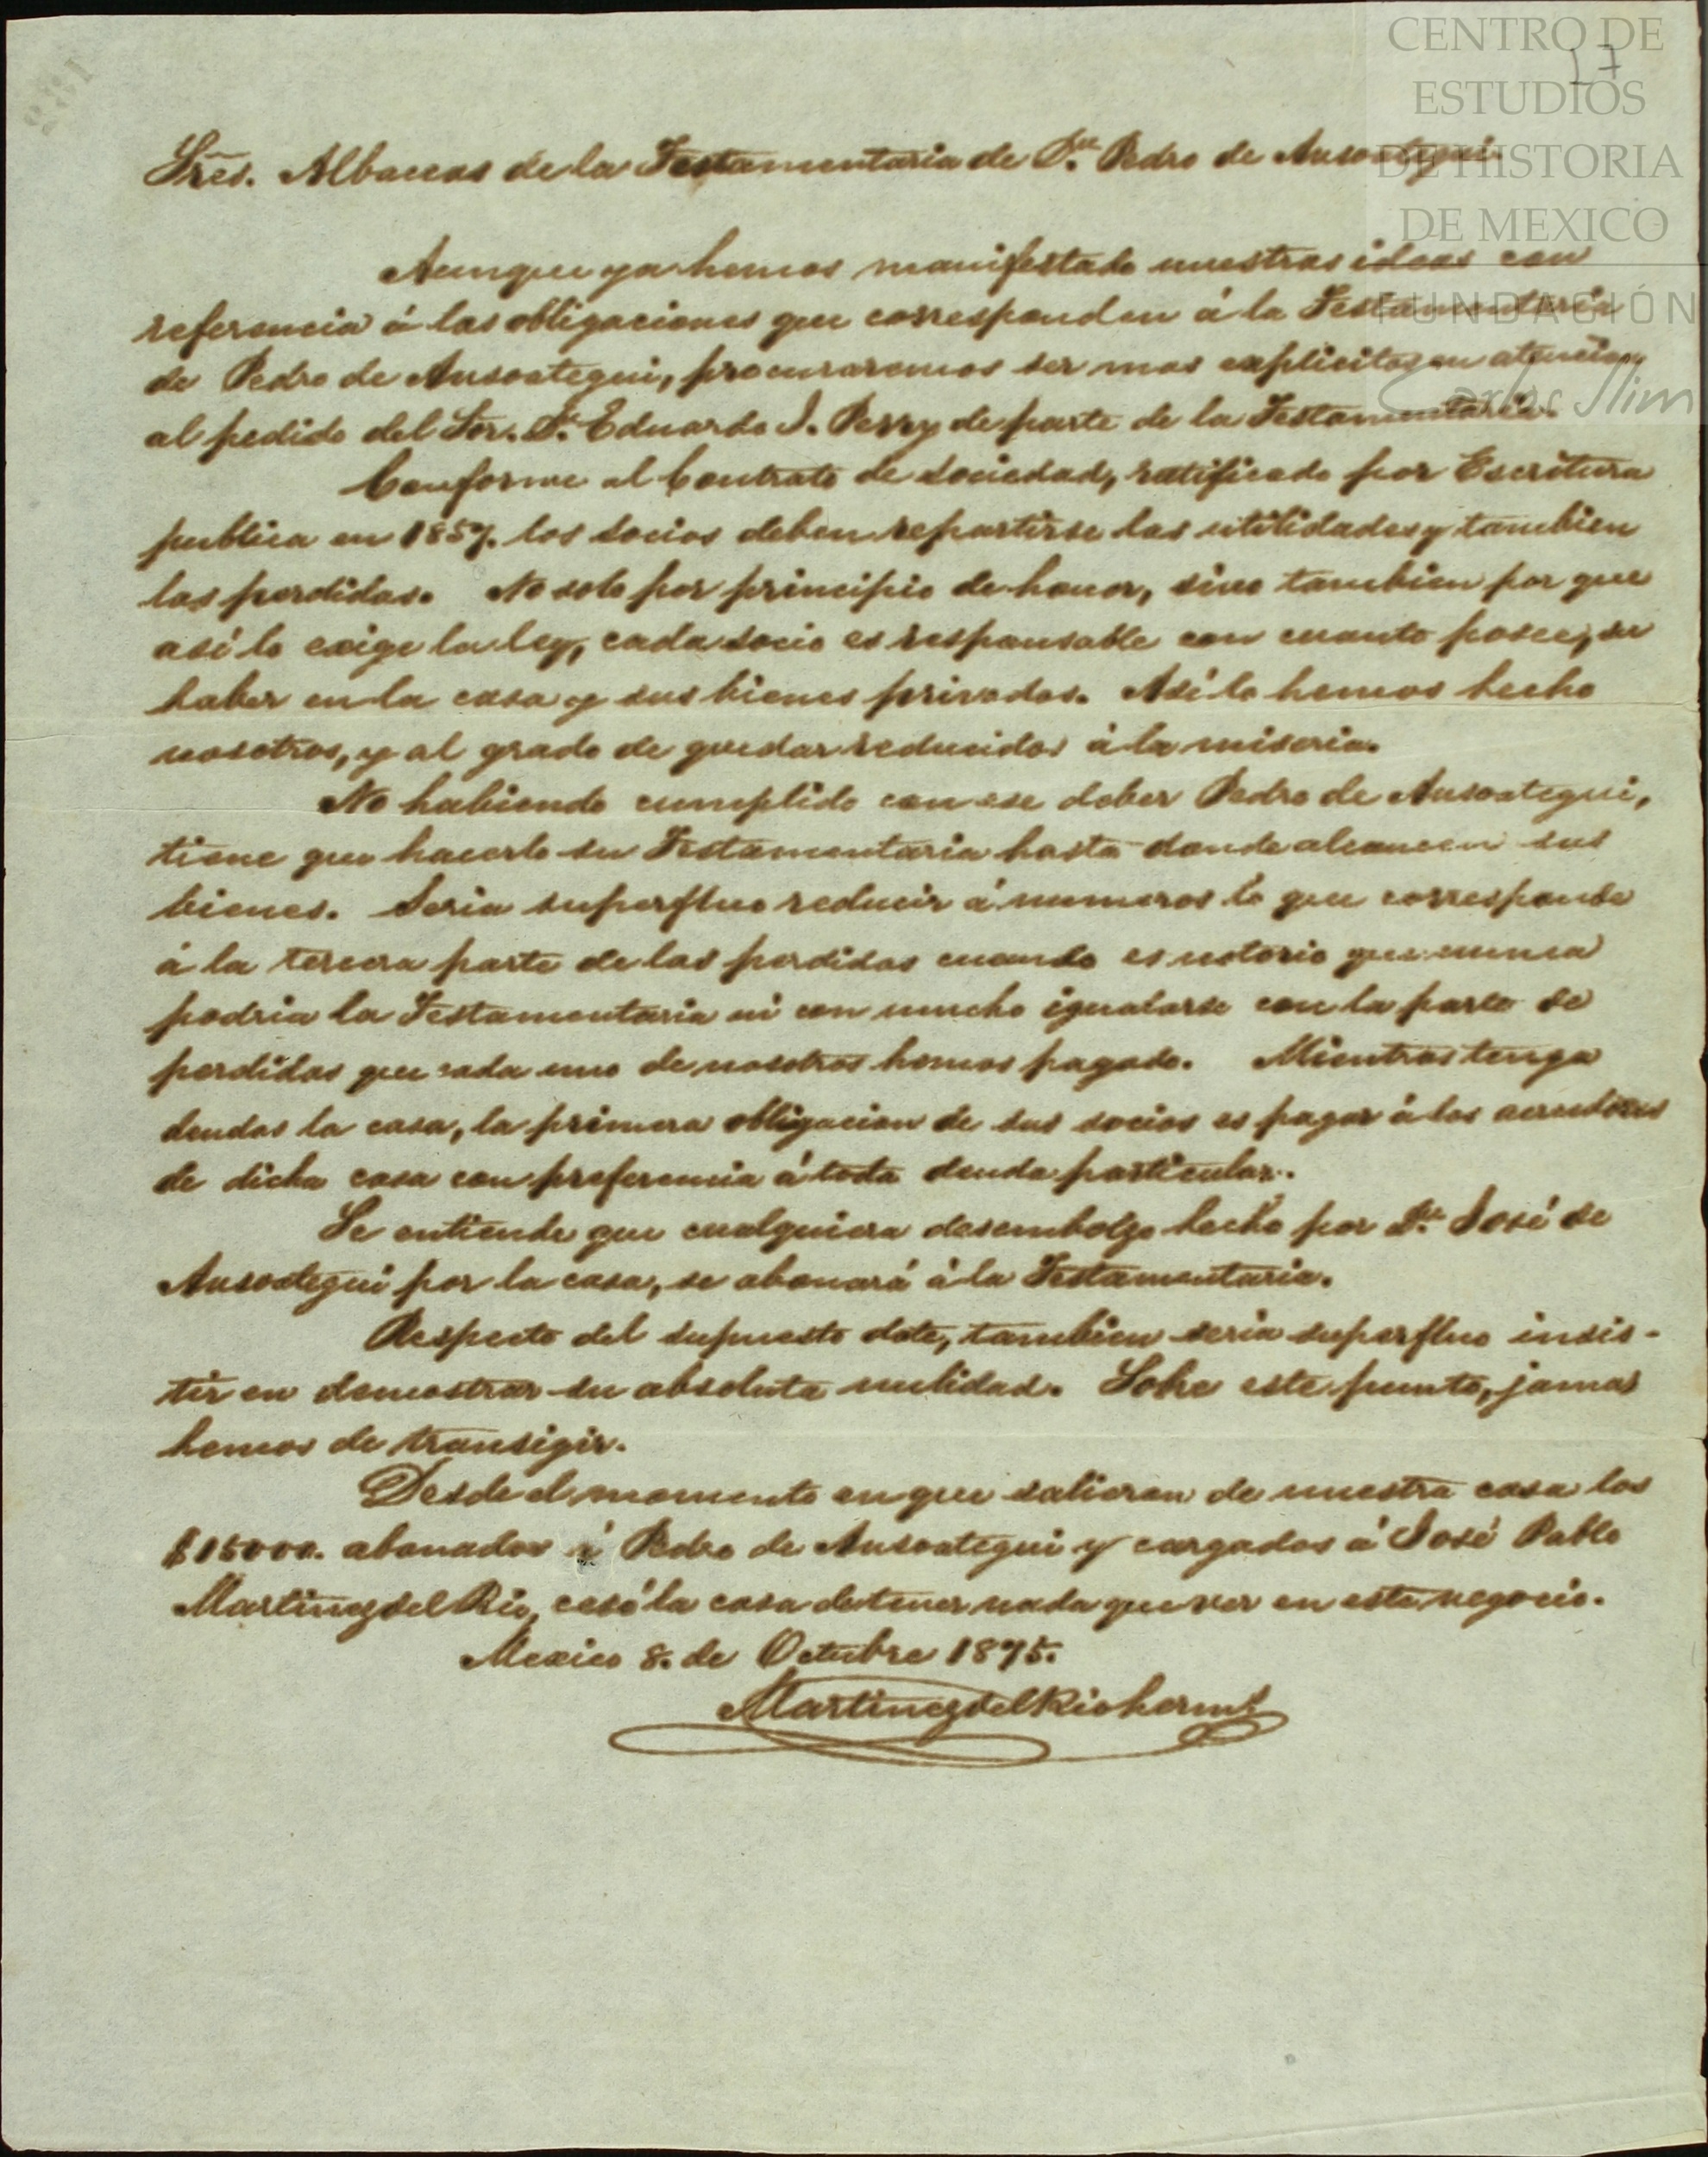 CENTRO DE
ESTUDIOS
DE HISTORIA
DE MEXICO
FUNDACIÓN
Carlos Slim
17
Sres. Albaceas de la Testamentaria de Dn. Pedro de Ansoategui.
Aunque ya hemos manifestado nuestras ideas con
referencia á las obligaciones que corresponden á la Testamentaria
de Pedro de Ansoategui, procuraremos ser mas explicitos en atencion
al pedido del Sor. Dn. Eduardo J. Perry de parte de la Testamentaria.
Conforme al Contrato de Sociedad, ratificado por Escritura
publica en 1857. los socios deben repartirse las utilidades y tambien
las perdidas. No solo por principio de honor, sino tambien por que
asi lo exige la ley, cada socio es responsable con cuanto posee, su
haber en la casa y sus bienes privados. Asi lo hemos hecho
nosotros, y al grado de quedar reducidos á la miseria.
No habiendo cumplido con ese deber Pedro de Ansoategui,
tiene que hacerlo su Testamentaria hasta donde alcancen sus
bienes. Seria superfluo reducir á numeros lo que corresponde
á la tercera parte de las perdidas cuando es notorio que nunca
podria la Testamentaria ni con mucho igualarse con la parte de
perdidas que cada uno de nosotros hemos pagado. Mientras tenga
deudas la casa, la primera obligacion de sus socios es pagar á los acreedores
de dicha casa con preferencia á toda deuda particular.
Se entiende que cualquiera desembolzo hecho por Dn. José de
Ansoategui por la casa, se abonará á la Testamentaria.
Respecto del supuesto dote, tambien seria superfluo insis-
tir en demostrar su absoluta nulidad. Sobre este punto, jamas
hemos de transigir.
Desde el momento en que salieron de nuestra casa los
$15000. abonados á Pedro de Ansoategui y cargados á José Pablo
Martinez del Rio, cesó la casa de tener nada que ver en este negocio.
Mexico 8. de Octubre 1875.
Martinez del Rio hermos